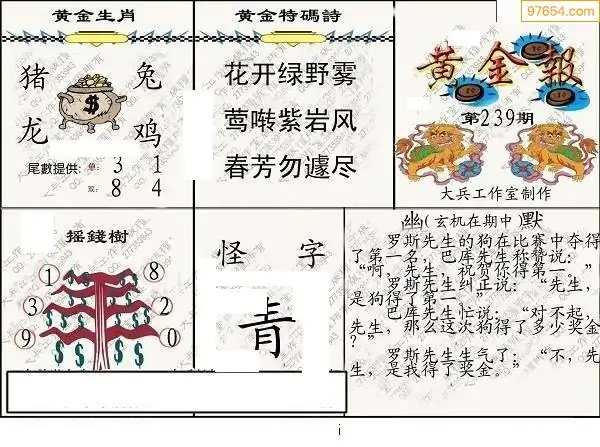 97654.com
黄金生肖
猪 兔
龙 鸡
尾數提供: 单: 3 1
双: 8 4
黄金特碼詩
花开绿野雾
莺啭紫岩风
春芳勿遽尽
黄金報
第239期
大兵工作室制作
摇錢樹
1 8
3 9
2 0
怪 字
青
幽(玄机在期中)默
罗斯先生的狗在比赛中夺得
了第一名，巴库先生称赞说：
“啊，先生，祝贺你得第一。”
罗斯先生纠正说：“先生，
是狗得了第一。”
巴库先生忙说：“对不起，
先生，那么这次狗得了多少奖金
？”
罗斯先生生气了：“不，先
生，是我得了奖金。”
i